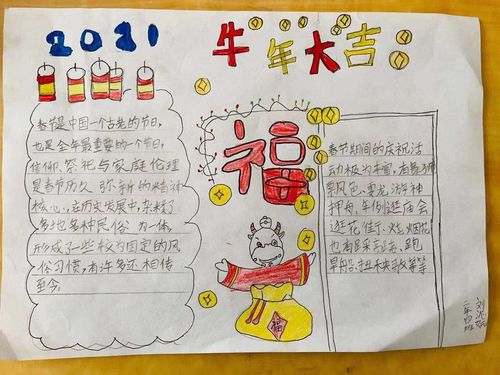 2021
牛年大吉
春节是中国一个古老的节日,
也是全年最重要的一个节日,
信仰、祭祀与家庭伦理
是春节历久弥新的精神
核心,在历史发展中,杂糅了
多地多种民俗为一体,
形成了一些较为固定的风
俗习惯,有许多还相传
至今。
福
福
春节期间的庆祝活
动极为丰富,有舞狮、
飘色、耍龙、游神、
押舟、年例、逛庙会
逛花街、烧烟花
也有踩高跷、跑
旱船、扭秧歌等等
二年四班
刘